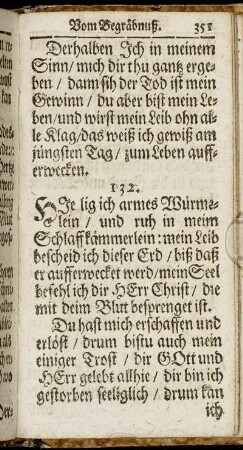 Vom Begräbnuß. 351
Derhalben Ich in meinem
Sinn/ mich dir thu gantz erge-
ben / dann sih der Tod ist mein
Gewinn / du aber bist mein Le-
ben/ und wirst mein Leib ohn al-
le Klag/das weiß ich gewiß am
jüngsten Tag / zum Leben auff-
erwecken.
132.
HIe lig ich armes Würme-
lein / und ruh in meim
Schlaffkämmerlein: mein Leib
bescheid ich dieser Erd / biß daß
er aufferwecket werd/ mein Seel
befehl ich dir HErr Christ / die
mit deim Blut besprenget ist.
Du hast mich erschaffen und
erlöst / drum bistu auch mein
einiger Trost / dir GOtt und
HErr gelebt allhie/ dir bin ich
gestorben seeliglich / drum kan
ich